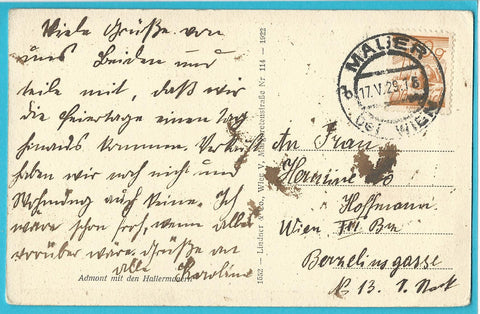 Viele Grüße von
uns Beiden und
teile mit, daß wir
die Feiertage einen Tag
hinaus kommen. Verkauft
haben wir noch nicht und
Wohnung auch keine. Ich
wäre schon froh, wenn alles
vorüber wäre. Grüße an
alle Karoline
Admont mit den Hallermauern
1552 — Lindner & Co., Wien V. Margaretenstraße Nr. 114 — 1922
MAUER
17.V.29.
bei WIEN
An Frau
Hermine
Hoffmann
Wien
Berzeliusgasse
№ 13. 1. Stock